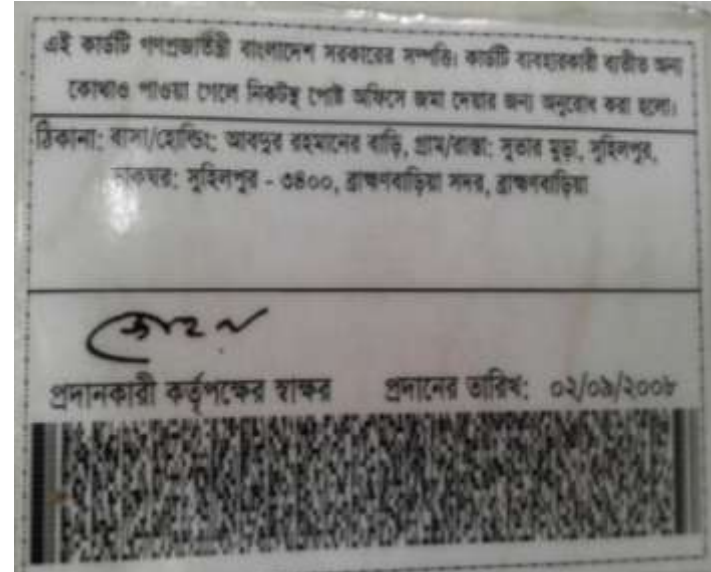 এই কার্ডটি গণপ্রজাতন্ত্রী বাংলাদেশ সরকারের সম্পত্তি। কার্ডটি ব্যবহারকারী ব্যতীত অন্য
কোথাও পাওয়া গেলে নিকটস্থ পোষ্ট অফিসে জমা দেয়ার জন্য অনুরোধ করা হলো।
ঠিকানা: বাসা/হোল্ডিং: আবদুর রহমানের বাড়ি, গ্রাম/রাস্তা: সুতার মুড়া, সুহিলপুর,
ডাকঘর: সুহিলপুর - ৩৪০০, ব্রাহ্মণবাড়িয়া সদর, ব্রাহ্মণবাড়িয়া
প্রদানকারী কর্তৃপক্ষের স্বাক্ষর প্রদানের তারিখ: ০২/০৯/২০০৮